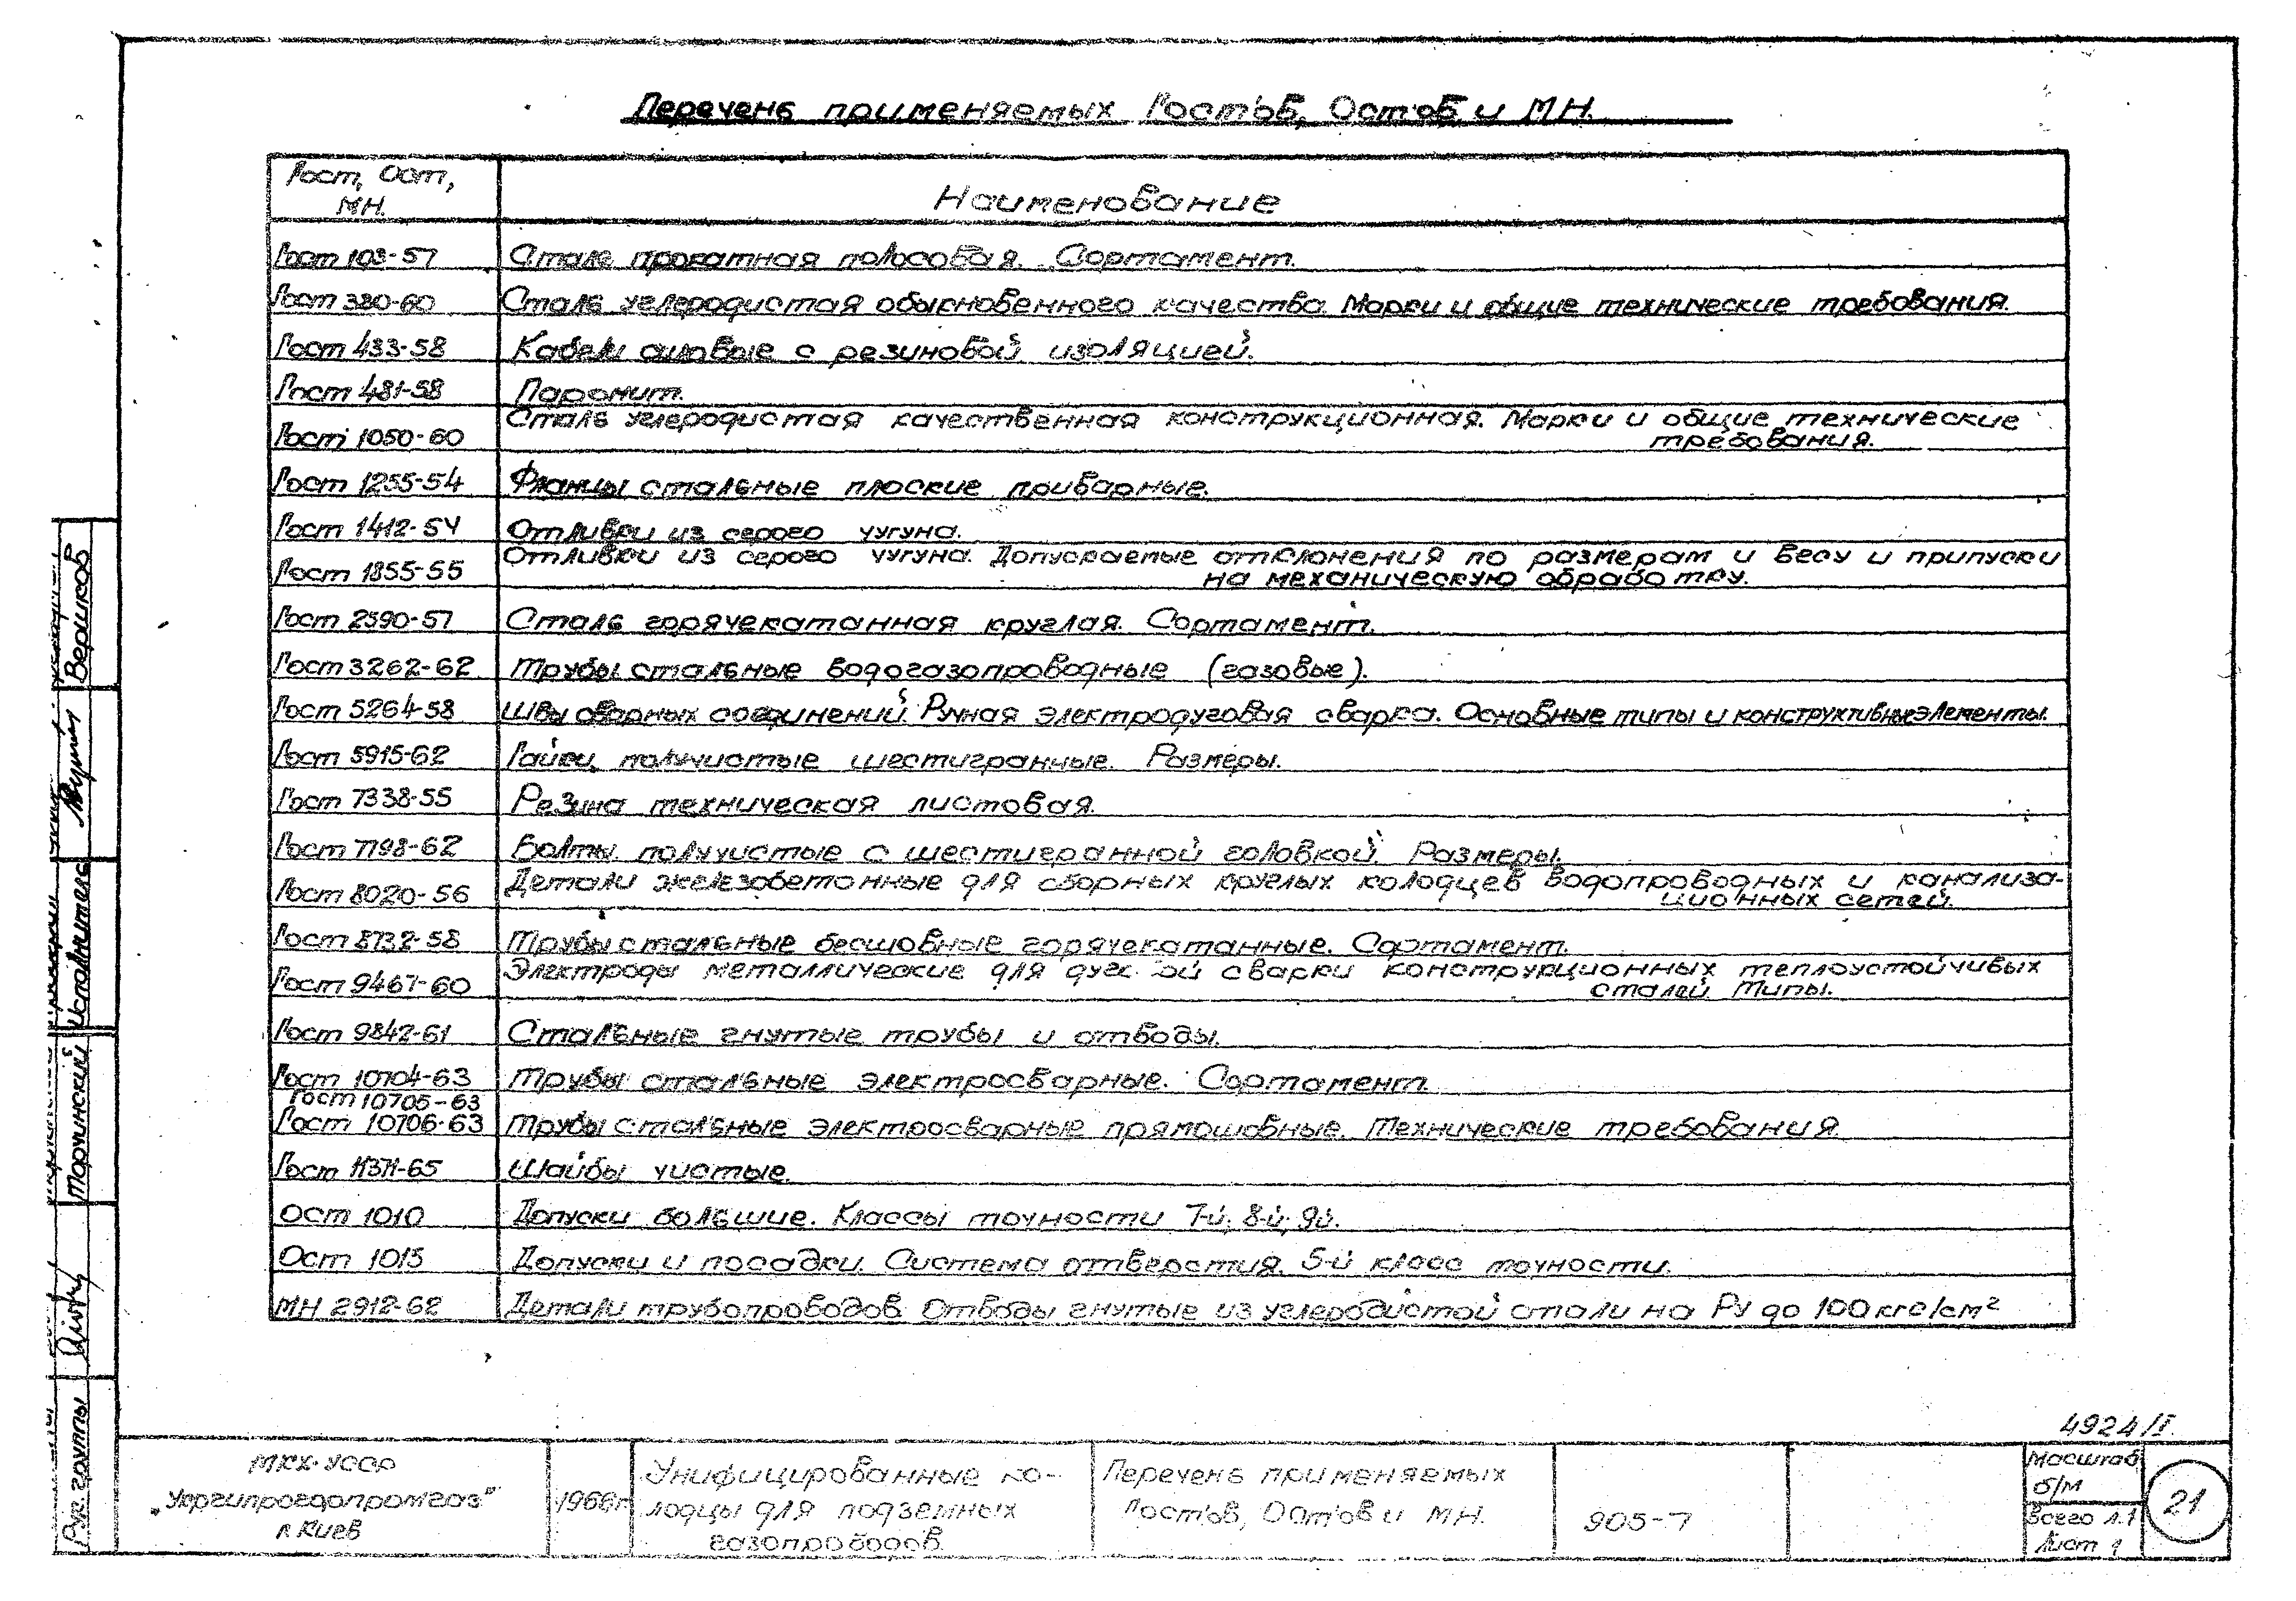 Перечень применяемых Гост'ов, Ост'ов и МН.
Гост, Ост, МН.
Наименование
Гост 103-57 Сталь прокатная полосовая. Сортамент.
Гост 380-60 Сталь углеродистая обыкновенного качества. Марки и общие технические требования.
Гост 433-58 Кабели силовые с резиновой изоляцией.
Гост 481-58 Паронит.
Гост 1050-60 Сталь углеродистая качественная конструкционная. Марки и общие технические
требования.
Гост 1255-54 Фланцы стальные плоские приварные.
Гост 1412-54 Отливки из серого чугуна.
Гост 1855-55 Отливки из серого чугуна. Допускаемые отклонения по размерам и весу и припуски
на механическую обработку.
Гост 2590-57 Сталь горячекатанная круглая. Сортамент.
Гост 3262-62 Трубы стальные водогазопроводные (газовые).
Гост 5264-58 Швы сварных соединений. Ручная электродуговая сварка. Основные типы и конструктивные элементы.
Гост 5915-62 Гайки получистые шестигранные. Размеры.
Гост 7338-55 Резина техническая листовая.
Гост 7798-62 Болты получистые с шестигранной головкой. Размеры.
Гост 8020-56 Детали железобетонные для сборных круглых колодцев водопроводных и канализа-
ционных сетей.
Гост 8732-58 Трубы стальные бесшовные горячекатанные. Сортамент.
Гост 9467-60 Электроды металлические для дуговой сварки конструкционных теплоустойчивых
сталей. Типы.
Гост 9842-61 Стальные гнутые трубы и отводы.
Гост 10704-63 Трубы стальные электросварные. Сортамент.
Гост 10705-63
Гост 10706-63 Трубы стальные электросварные прямошовные. Технические требования.
Гост 11371-65 Шайбы чистые.
Ост 1010 Допуски большие. Классы точности 7-й, 8-й, 9й.
Ост 1015 Допуски и посадки. Система отверстия. 5-й класс точности.
МН 2912-62 Детали трубопроводов. Отводы гнутые из углеродистой стали на Ру до 100 кгс/см²
Вершков
Исполнитель
Марчинский
Рук. группы
4924/I.
МКХ УССР
„Укргипрогорпромгаз"
г. Киев
1966г
Унифицированные ко-
лодцы для подземных
газопроводов.
Перечень применяемых
Гост'ов, Ост'ов и МН.
905-7
Масштаб
б/м
Всего л.1
Лист 1
21